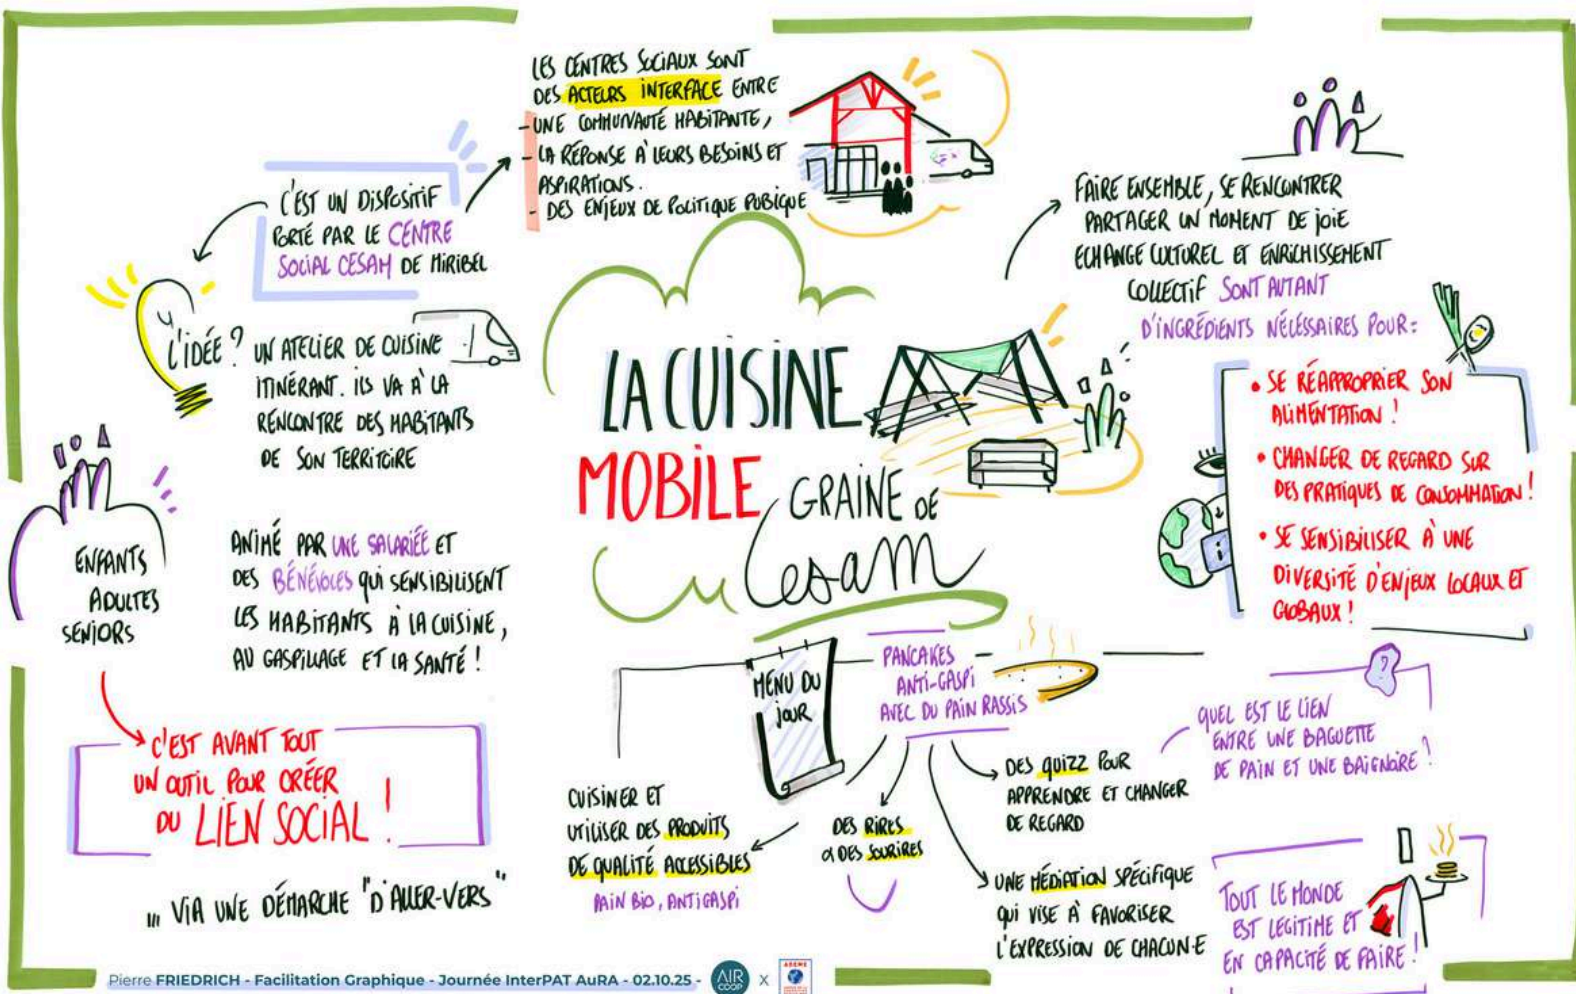 LES CENTRES SOCIAUX SONT
DES ACTEURS INTERFACE ENTRE
- UNE COMMUNAUTÉ HABITANTE,
- LA RÉPONSE À LEURS BESOINS ET
ASPIRATIONS.
- DES ENJEUX DE POLITIQUE PUBIQUE
C'EST UN DISPOSITIF
PORTÉ PAR LE CENTRE
SOCIAL CESAM DE MIRIBEL
L'IDÉE ?
UN ATELIER DE CUISINE
ITINÉRANT. ILS VA À LA
RENCONTRE DES HABITANTS
DE SON TERRITOIRE
ENFANTS
ADULTES
SENIORS
ANIMÉ PAR UNE SALARIÉE ET
DES BÉNÉVOLES QUI SENSIBILISENT
LES HABITANTS À LA CUISINE,
AU GASPILLAGE ET LA SANTÉ !
C'EST AVANT TOUT
UN OUTIL POUR CRÉER
DU LIEN SOCIAL !
... VIA UNE DÉMARCHE "D'ALLER-VERS"
LA CUISINE
MOBILE
GRAINE DE
Cesam
FAIRE ENSEMBLE, SE RENCONTRER
PARTAGER UN MOMENT DE JOIE
ECHANGE CULTUREL ET ENRICHISSEMENT
COLLECTIF SONT AUTANT
D'INGRÉDIENTS NÉCESSAIRES POUR :
• SE RÉAPPROPRIER SON
ALIMENTATION !
• CHANGER DE REGARD SUR
DES PRATIQUES DE CONSOMMATION !
• SE SENSIBILISER À UNE
DIVERSITÉ D'ENJEUX LOCAUX ET
GLOBAUX !
MENU DU
JOUR
PANCAKES
ANTI-GASPI
AVEC DU PAIN RASSIS
CUISINER ET
UTILISER DES PRODUITS
DE QUALITÉ ACCESSIBLES
PAIN BIO, ANTIGASPI
DES RIRES
& DES SOURIRES
DES QUIZZ POUR
APPRENDRE ET CHANGER
DE REGARD
?
QUEL EST LE LIEN
ENTRE UNE BAGUETTE
DE PAIN ET UNE BAIGNOIRE ?
UNE MÉDIATION SPÉCIFIQUE
QUI VISE À FAVORISER
L'EXPRESSION DE CHACUN·E
TOUT LE MONDE
EST LEGITIME ET
EN CAPACITÉ DE FAIRE !
Pierre FRIEDRICH - Facilitation Graphique - Journée InterPAT AuRA - 02.10.25 -
AIR
COOP
X
ADEME